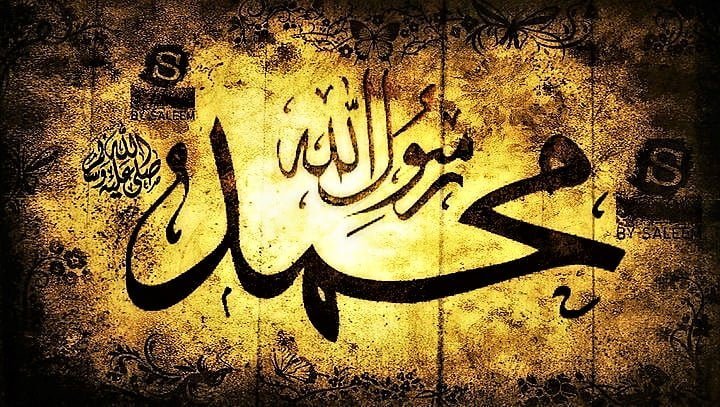 S
BY SALEEM
رسول الله
صلى الله عليه وسلم
محمد
S
BY SALEEM